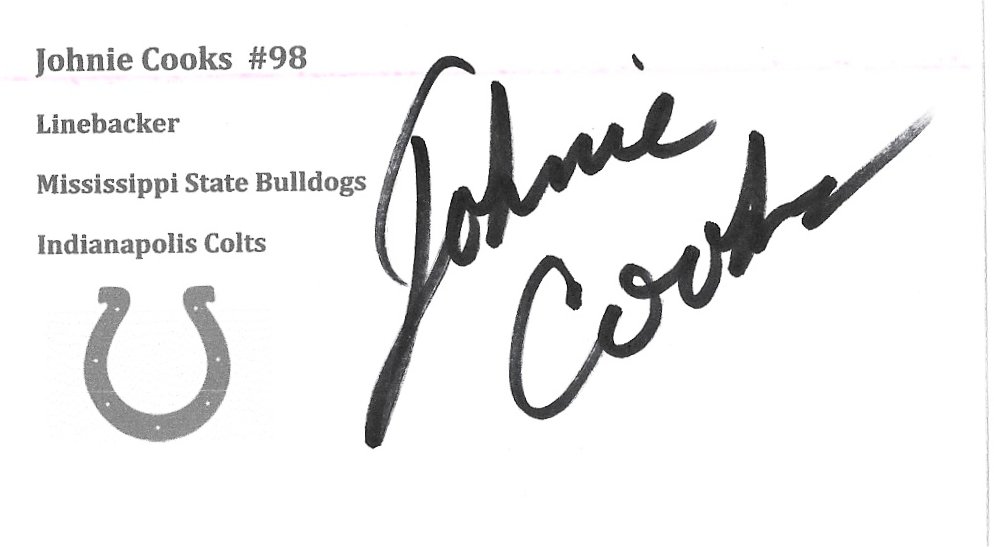 Johnie Cooks #98
Linebacker
Mississippi State Bulldogs
Indianapolis Colts
Johnie
Cooks